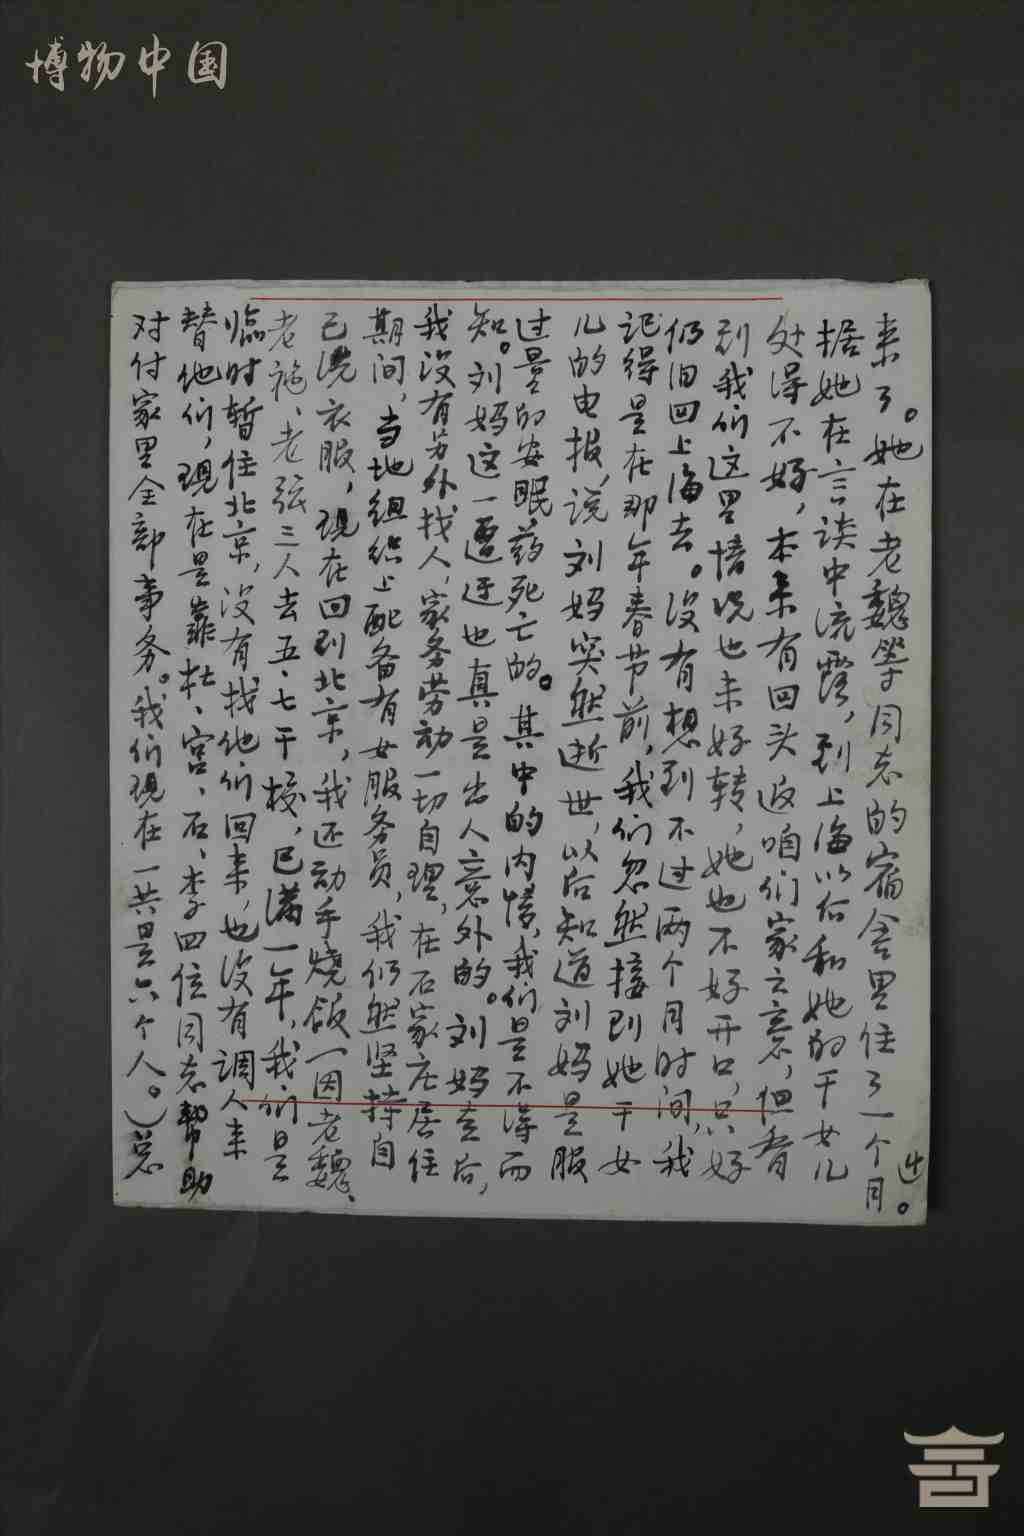 博物中国
来了。她在老魏等同志的宿舍里住了一个月
4。
据她在言谈中流露，到上海以后和她的干女儿
处得不好，本来有回头返咱们家之意，但看
到我们这里情况也未好转，她也不好开口，只好
仍旧回上海去。没有想到不过两个月时间，我
记得是在那年春节前，我们忽然接到她干女
儿的电报，说刘妈突然逝世，以后知道刘妈是服
过量的安眠药死亡的。其中的内情，我们是不得而
知。刘妈这一遭迂也真是出人意外的。刘妈走后，
我没有另外找人，家务劳动一切自理，在石家庄居住
期间，当地组织上配备有女服务员，我仍然坚持自
己洗衣服，现在回到北京，我还动手烧饭一因老魏、
老施、老张三人去五·七干校，已满一年，我们是
临时暂住北京，没有找他们回来，也没有调人来
替他们，现在是靠杜、宫、石、李四位同志帮助
对付家里全部事务。我们现在一共是六个人。）总